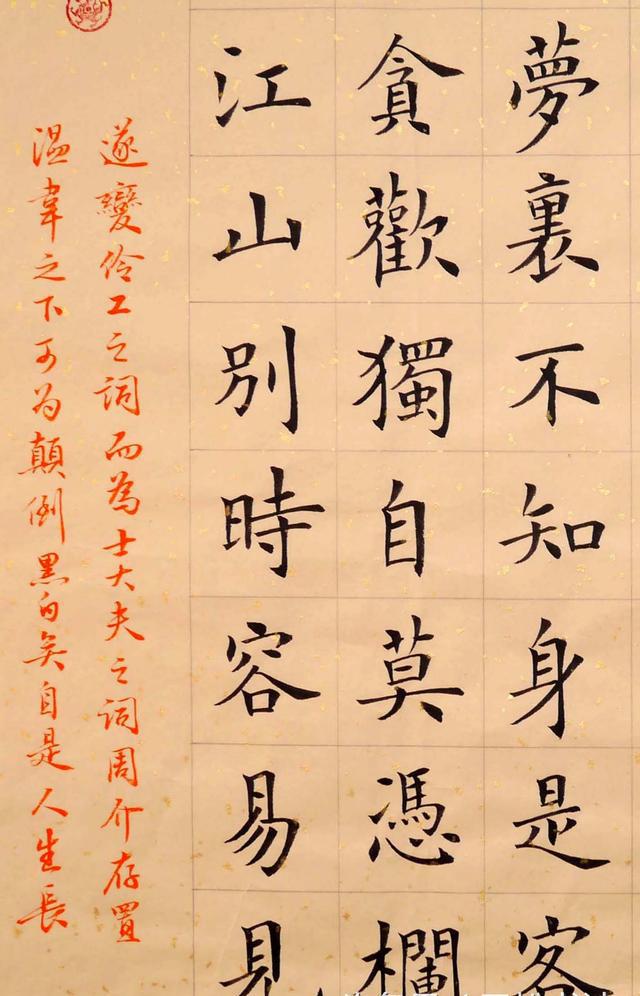 夢裏不知身是客
貪歡獨自莫憑欄
江山別時容易見
遂變伶工之詞而為士大夫之詞周介存置
温韋之下可为顛倒黑白矣自是人生長